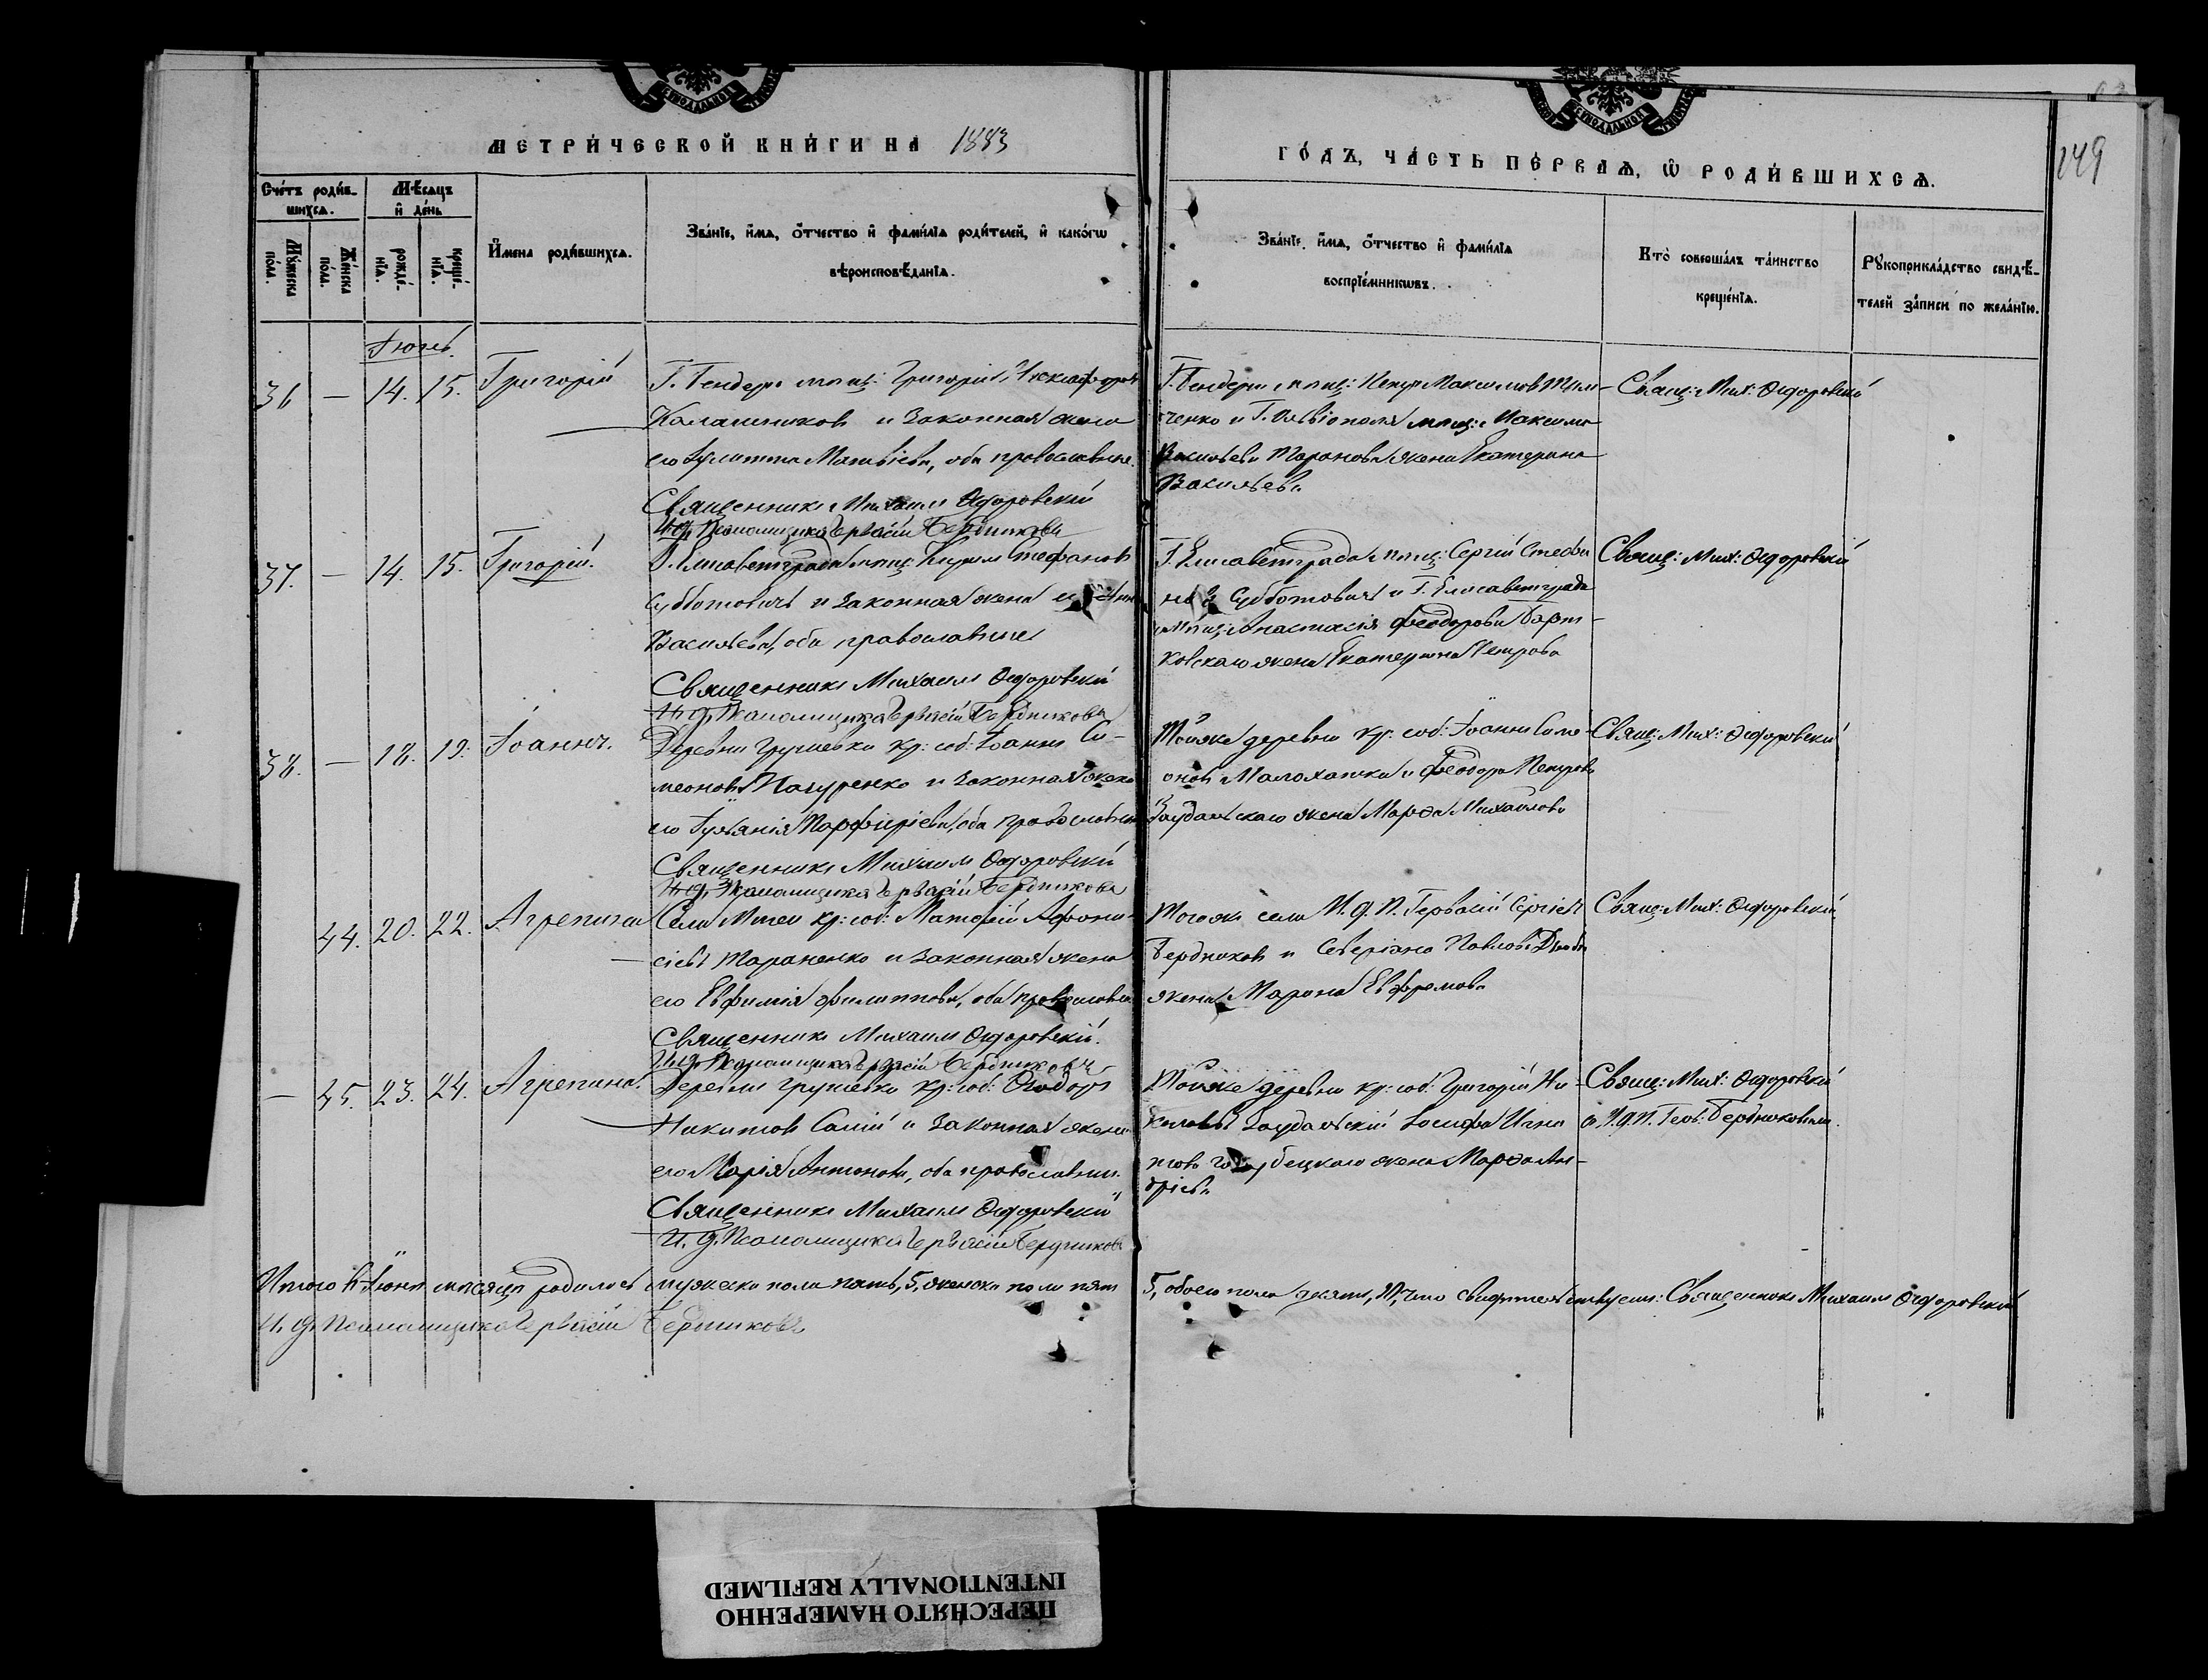 МЕТРИ́ЧЕСКОЙ КНИ́ГИ НА 1883
ГО́ДЪ, ЧА́СТЬ ПЕ́РВАѦ, Ѡ РОДИ́ВШИХСѦ.
149
Счетъ роди́в-
шихсѧ.
Мѣ́сѧцъ
и҆ де́нь
И҆мена роди́вшихсѧ.
Зва́нїе, и҆́мѧ, ѻ҆́тчество и҆ фами́лїѧ роди́телей, и҆ како́гѡ
вѣроисповѣ́данїѧ.
Зва́нїе, и҆́мѧ, ѻ҆́тчество и҆ фами́лїѧ
воспрїе́мникѡвъ.
Кто̀ соверша́лъ та́инство
креще́нїѧ.
Рꙋкоприкла́дство свидѣ́-
телей за́писи по жела́нїю.
Мꙋ́жеска
по́ла.
Же́нска
по́ла.
рожде́-
нїѧ.
креще́-
нїѧ.
Іюнь.
36 — 14. 15. Григорій
Г. Бендеръ мѣщ: Григорій
Калашниковъ и законная жена
его Іулитта Матвіева, оба православные.
Священникъ Михаилъ Ѳедоровскій
И. д. Псаломщика Гервасій Бердниковъ
Г. Бендеръ мѣщ: Петръ Максимовъ
ченко и Г. мѣщ:
Васильева Таранова жена Екатерина
Васильева
Свящ: Мих: Ѳедоровскій
37. — 14. 15. Григорій.
Г. Елисаветграда мѣщ: Кирилъ Стефановъ
Субботовичъ и законная жена его
Васильева, оба православные
Священникъ Михаилъ Ѳедоровскій
И. д. Псаломщика Гервасій Бердниковъ
Г. Елисаветграда мѣщ: Сергій Стефа
новъ Субботовичъ и Г. Елисаветграда
мѣщ: Анастасія Феодорова
ковскаго жена Екатерина Петрова
Свящ: Мих: Ѳедоровскій
38. — 18. 19. Іоаннъ.
Деревни Грушевки кр: соб: Іоаннъ Си-
меоновъ и законная жена
его Іуліанія Порфиріева, оба православные
Священникъ Михаилъ Ѳедоровскій
И. д. Псаломщика Гервасій Бердниковъ
Тойже деревни кр: соб: Іоаннъ Симе-
оновъ Малохатка и Феодора Петрова
жена Марѳа Михайлова
Свящ: Мих: Ѳедоровскій
44. 20. 22. Агрепина
Села кр: соб: Матѳей Афана-
сіевъ Тараненко и законная жена
его Евфимія Филиппова, оба православные
Священникъ Михаилъ Ѳедоровскій.
И. д. Псаломщика Гервасій Бердниковъ
Тогоже села И. д. П. Гервасій Сергіевъ
Бердниковъ и Северіана Павлова
жена Марина Евфремова
Свящ: Мих: Ѳедоровскій
— 45. 23. 24. Агрепина.
Деревни Грушевки кр: соб: Ѳеодоръ
Никитовъ и законная жена
его Марія Антонова, оба православные.
Священникъ Михаилъ Ѳедоровскій
И. д. Псаломщика Гервасій Бердниковъ
Тойже деревни кр: соб: Григорій Ни-
Іосифа Игна
това жена Марѳа Ан-
дріева
Свящ: Мих: Ѳедоровскій
съ И. д. П. Герв: Бердниковымъ.
Итого въ Іюнѣ мѣсяцѣ родилось мужеска пола пять, 5, женска пола пять
5, обоего пола десять, 10, что свидѣтельствуемъ: Священникъ Михаилъ Ѳедоровскій
И. д. Псаломщика Гервасій Бердниковъ
ПЕРЕСНЯТО НАМЕРЕННО
INTENTIONALLY REFILMED